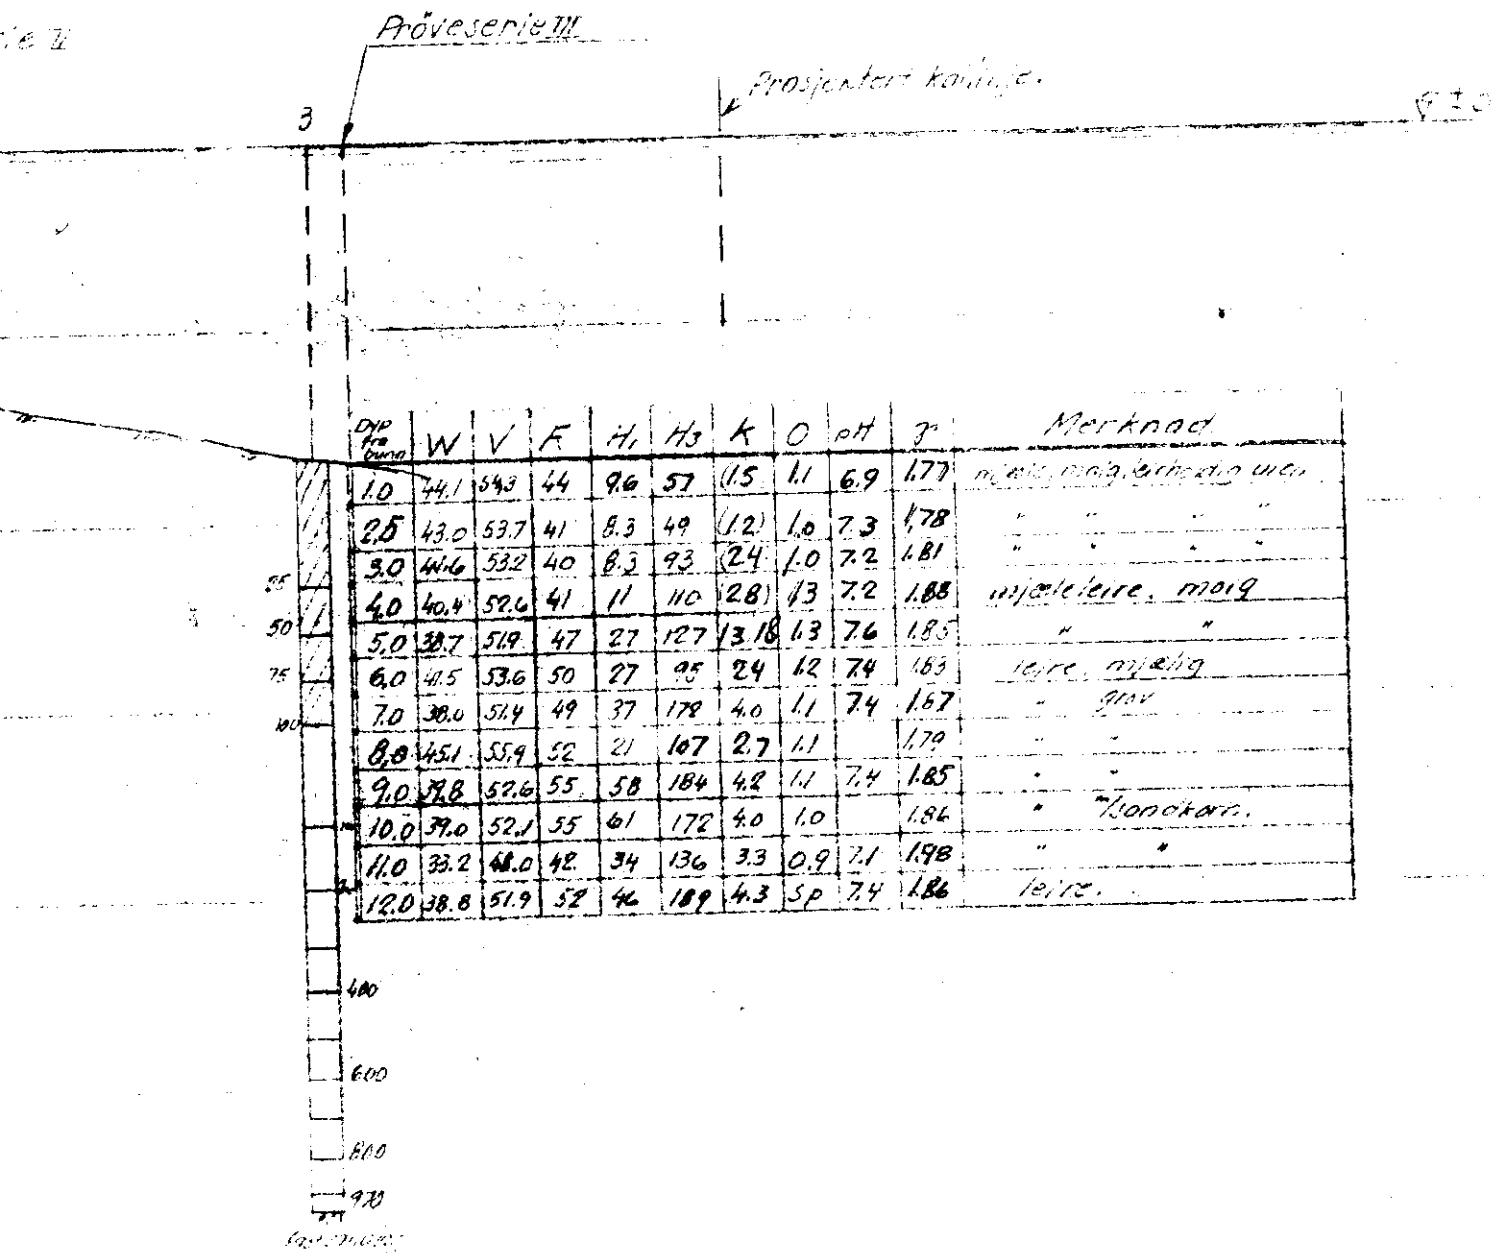 Prøveserie III
Prosjektert kailinje.
3
Dyp fra bunn W V F H₁ H₃ K O pH γ Merknad
1.0 44.1 54.3 44 9.6 57 (1.5 1.1 6.9 1.77
2.5 43.0 53.7 41 8.3 49 (1.2) 1.0 7.3 1.78 " " " "
3.0 41.6 53.2 40 8.3 93 (2.4 1.0 7.2 1.81 " " " "
25
4.0 40.4 52.6 41 11 110 (2.8) 1.3 7.2 1.88 mjæleleire, moig
50
5.0 38.7 51.9 47 27 127 1.3 7.6 1.85 " "
75
6.0 41.5 53.6 50 27 95 2.4 1.2 7.4 1.83 leire, mjælig
100
7.0 38.0 51.4 49 37 178 4.0 1.1 7.4 1.87 " grov
8.0 45.1 55.9 52 21 107 2.7 1.1 1.79 " "
9.0 39.8 52.6 55 58 184 4.2 1.1 7.4 1.85 " "
10.0 39.0 52.1 55 61 172 4.0 1.0 1.86 " "/sandkorn.
11.0 33.2 42 34 136 3.3 0.9 7.1 1.98 " "
12.0 38.8 51.9 52 46 189 4.3 sp 7.4 1.86 leire.
400
600
800
970